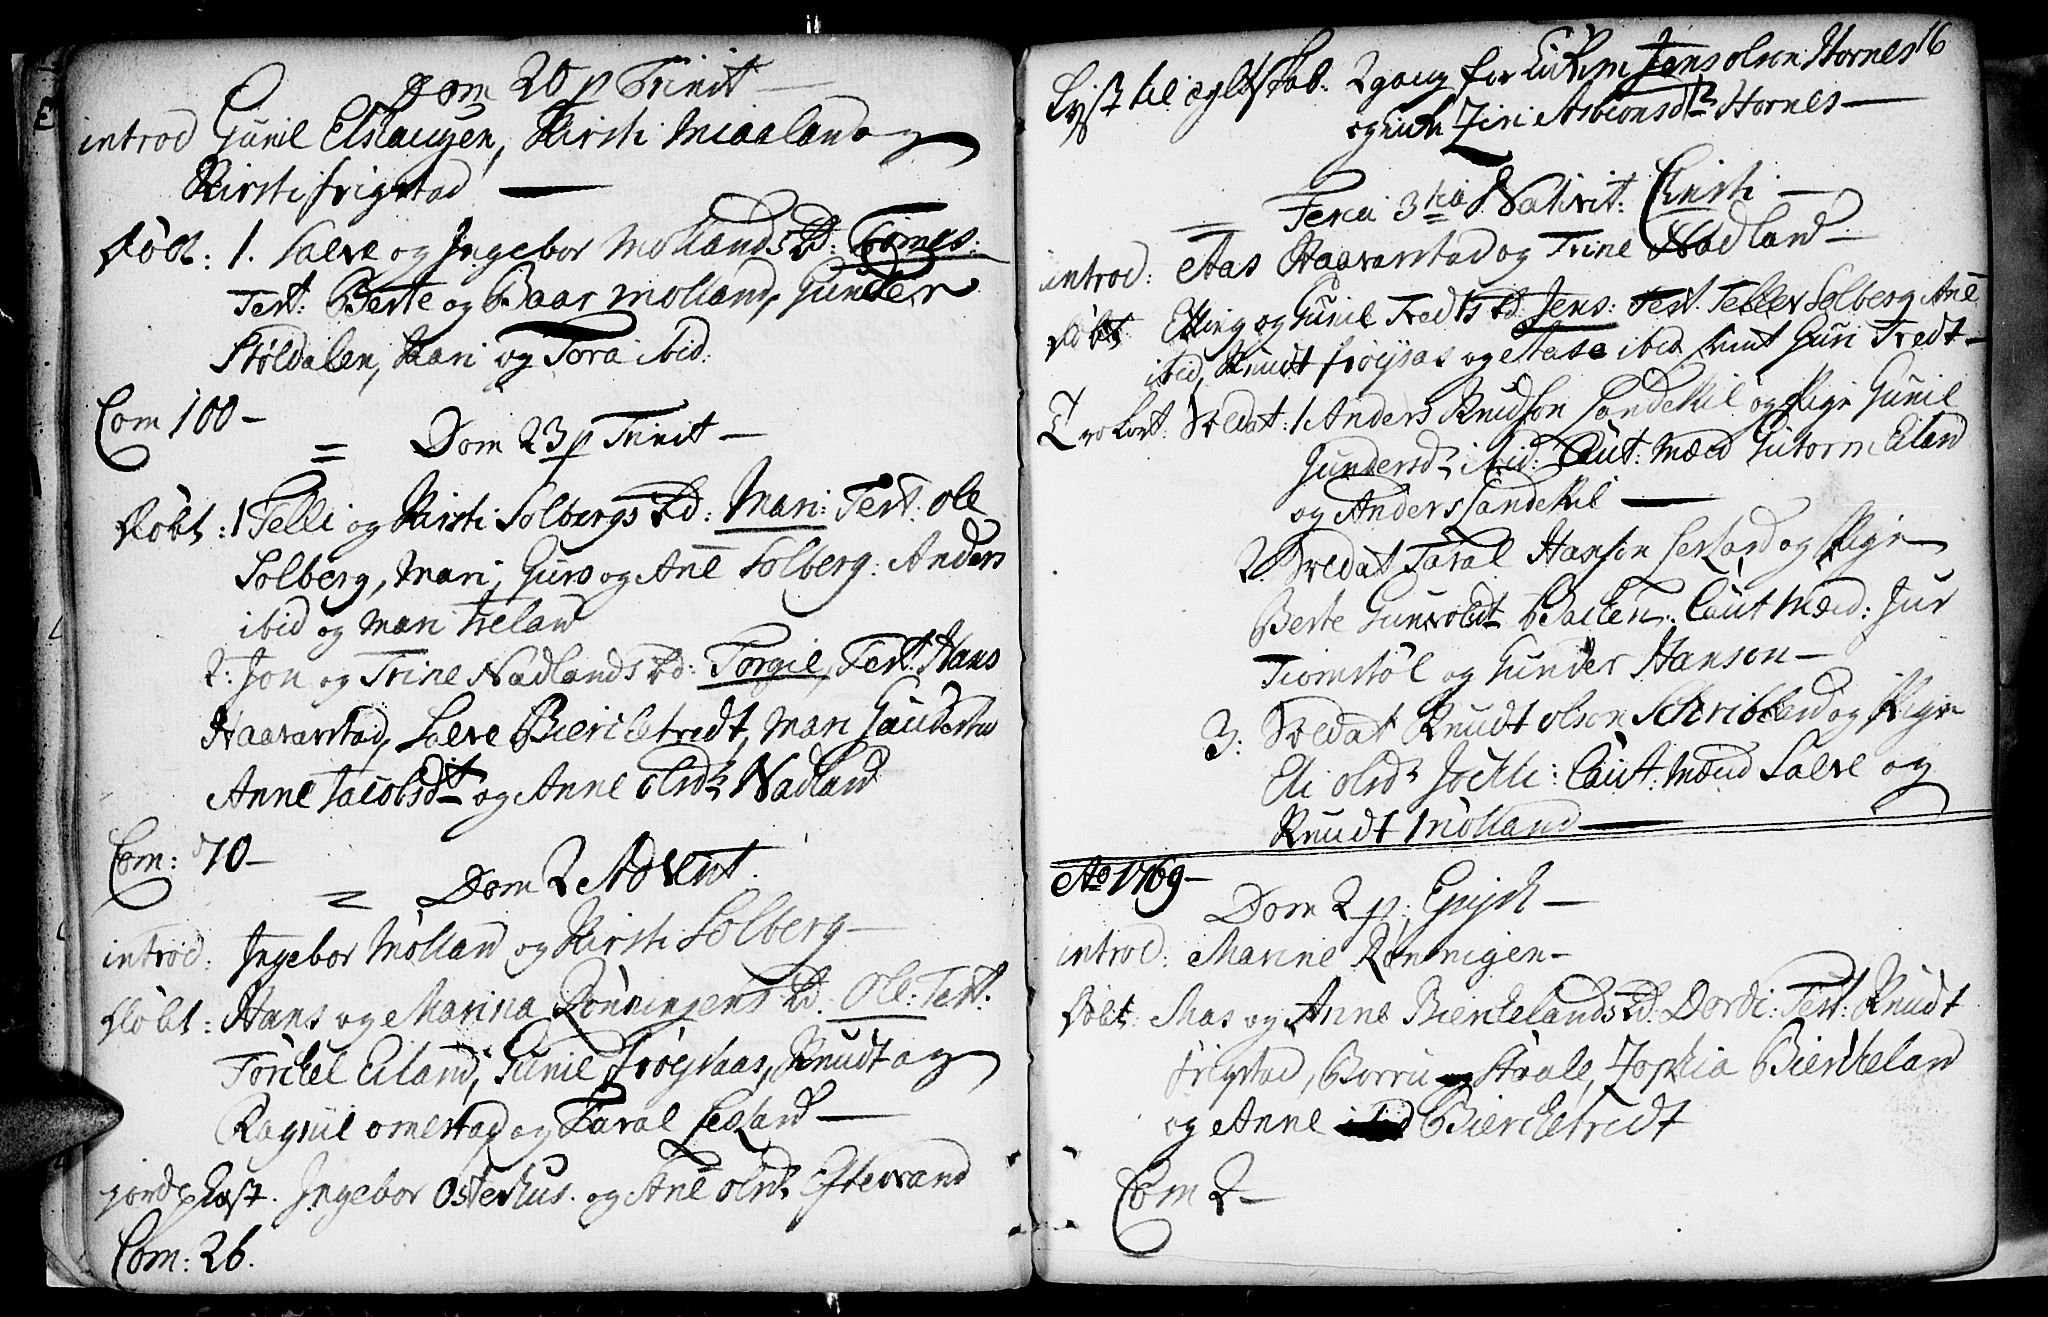 Dom 20 p Trinit
introd Gunil Elshaugen, Kirsti Miaaland og
Kirsti frigstad
døbt: 1. Salve og Ingebor Mollands bd:
Test: Berte og Baar Molland, Gunder
Støldalen, Mari og Tora ibid:
Com 100
Dom 23 p Trinit
døbt: 1 Telli og Kirsti Solbergs bd: Mari: Test: Ole
Solberg, Mari, Guro og Ane Solberg: Anders
ibid og Mari
2: Jon og Trine Nadlands bd: Torgie, Test: Hans
Haavarstad, Salve Bierchetredt, Mari
Anne Jacobsdt og Anne Olsdt Nadland
Com: 70
Dom 2 Advent
introd: Ingebor Molland og Kirsti Solberg
døbt: Hans og Marina Rønningens bd. Ole: Test.
Torchel Eiland, Gunil frøysaas, Knudt og
Ragnil omestad og Taral
jordpkast. Ingebor Osterhus. og Ane Olsdt
Com: 26.
16
Lyst til ægteskab: 2 gang for Jens Olson Hornes
og Siri Asbionsdt Hornes
Feria 3tia Nativit: Christi
introd: Aas Haavarstad og Trine Nadland
døbt Elling og Gunil Tredts bd. Jens: Test. Tellev Solberg, Ane
ibid, Knudt frøysas og Aase ibid samt Guri Tredt
Trolovt: Soldat: 1 Anders Knudson Sandekil og Pige Gunil
Gundersdt ibid: Caut: Mænd Gutorm Eiland
og Anders Sandekil
2. Soldat Taral Hanson og Pige
Berte Gunvoldt Bakken: Caut Mænd: Jur
Tiomstøl og Gunder Hanson
3: Soldat Knudt Olson og Pige
Eli Olsdt: Caut: Mænd Salve og
Knudt Molland
Ao 1769
Dom 2 p: Epiph
introd: Marine Rønnigen
Døbt: Aas og Anne Bierchelands bd. Dordi: Test: Knudt
frigstad, Borru og Staale, Sophia Biercheland
og Anne Bierchetredt
Com 2